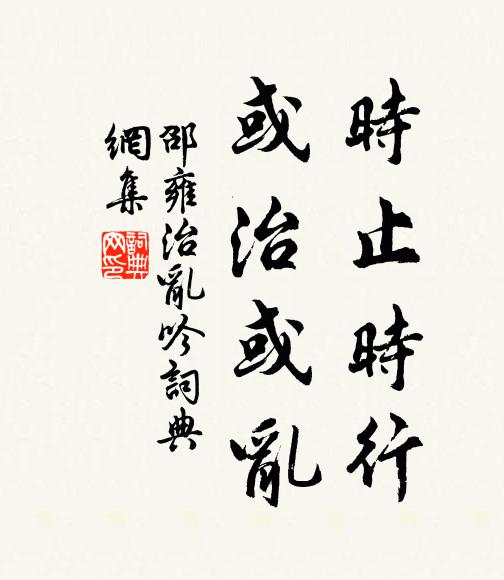 時止時行
或治或亂
邵雍治亂吟詞典
網集
詞典
网印